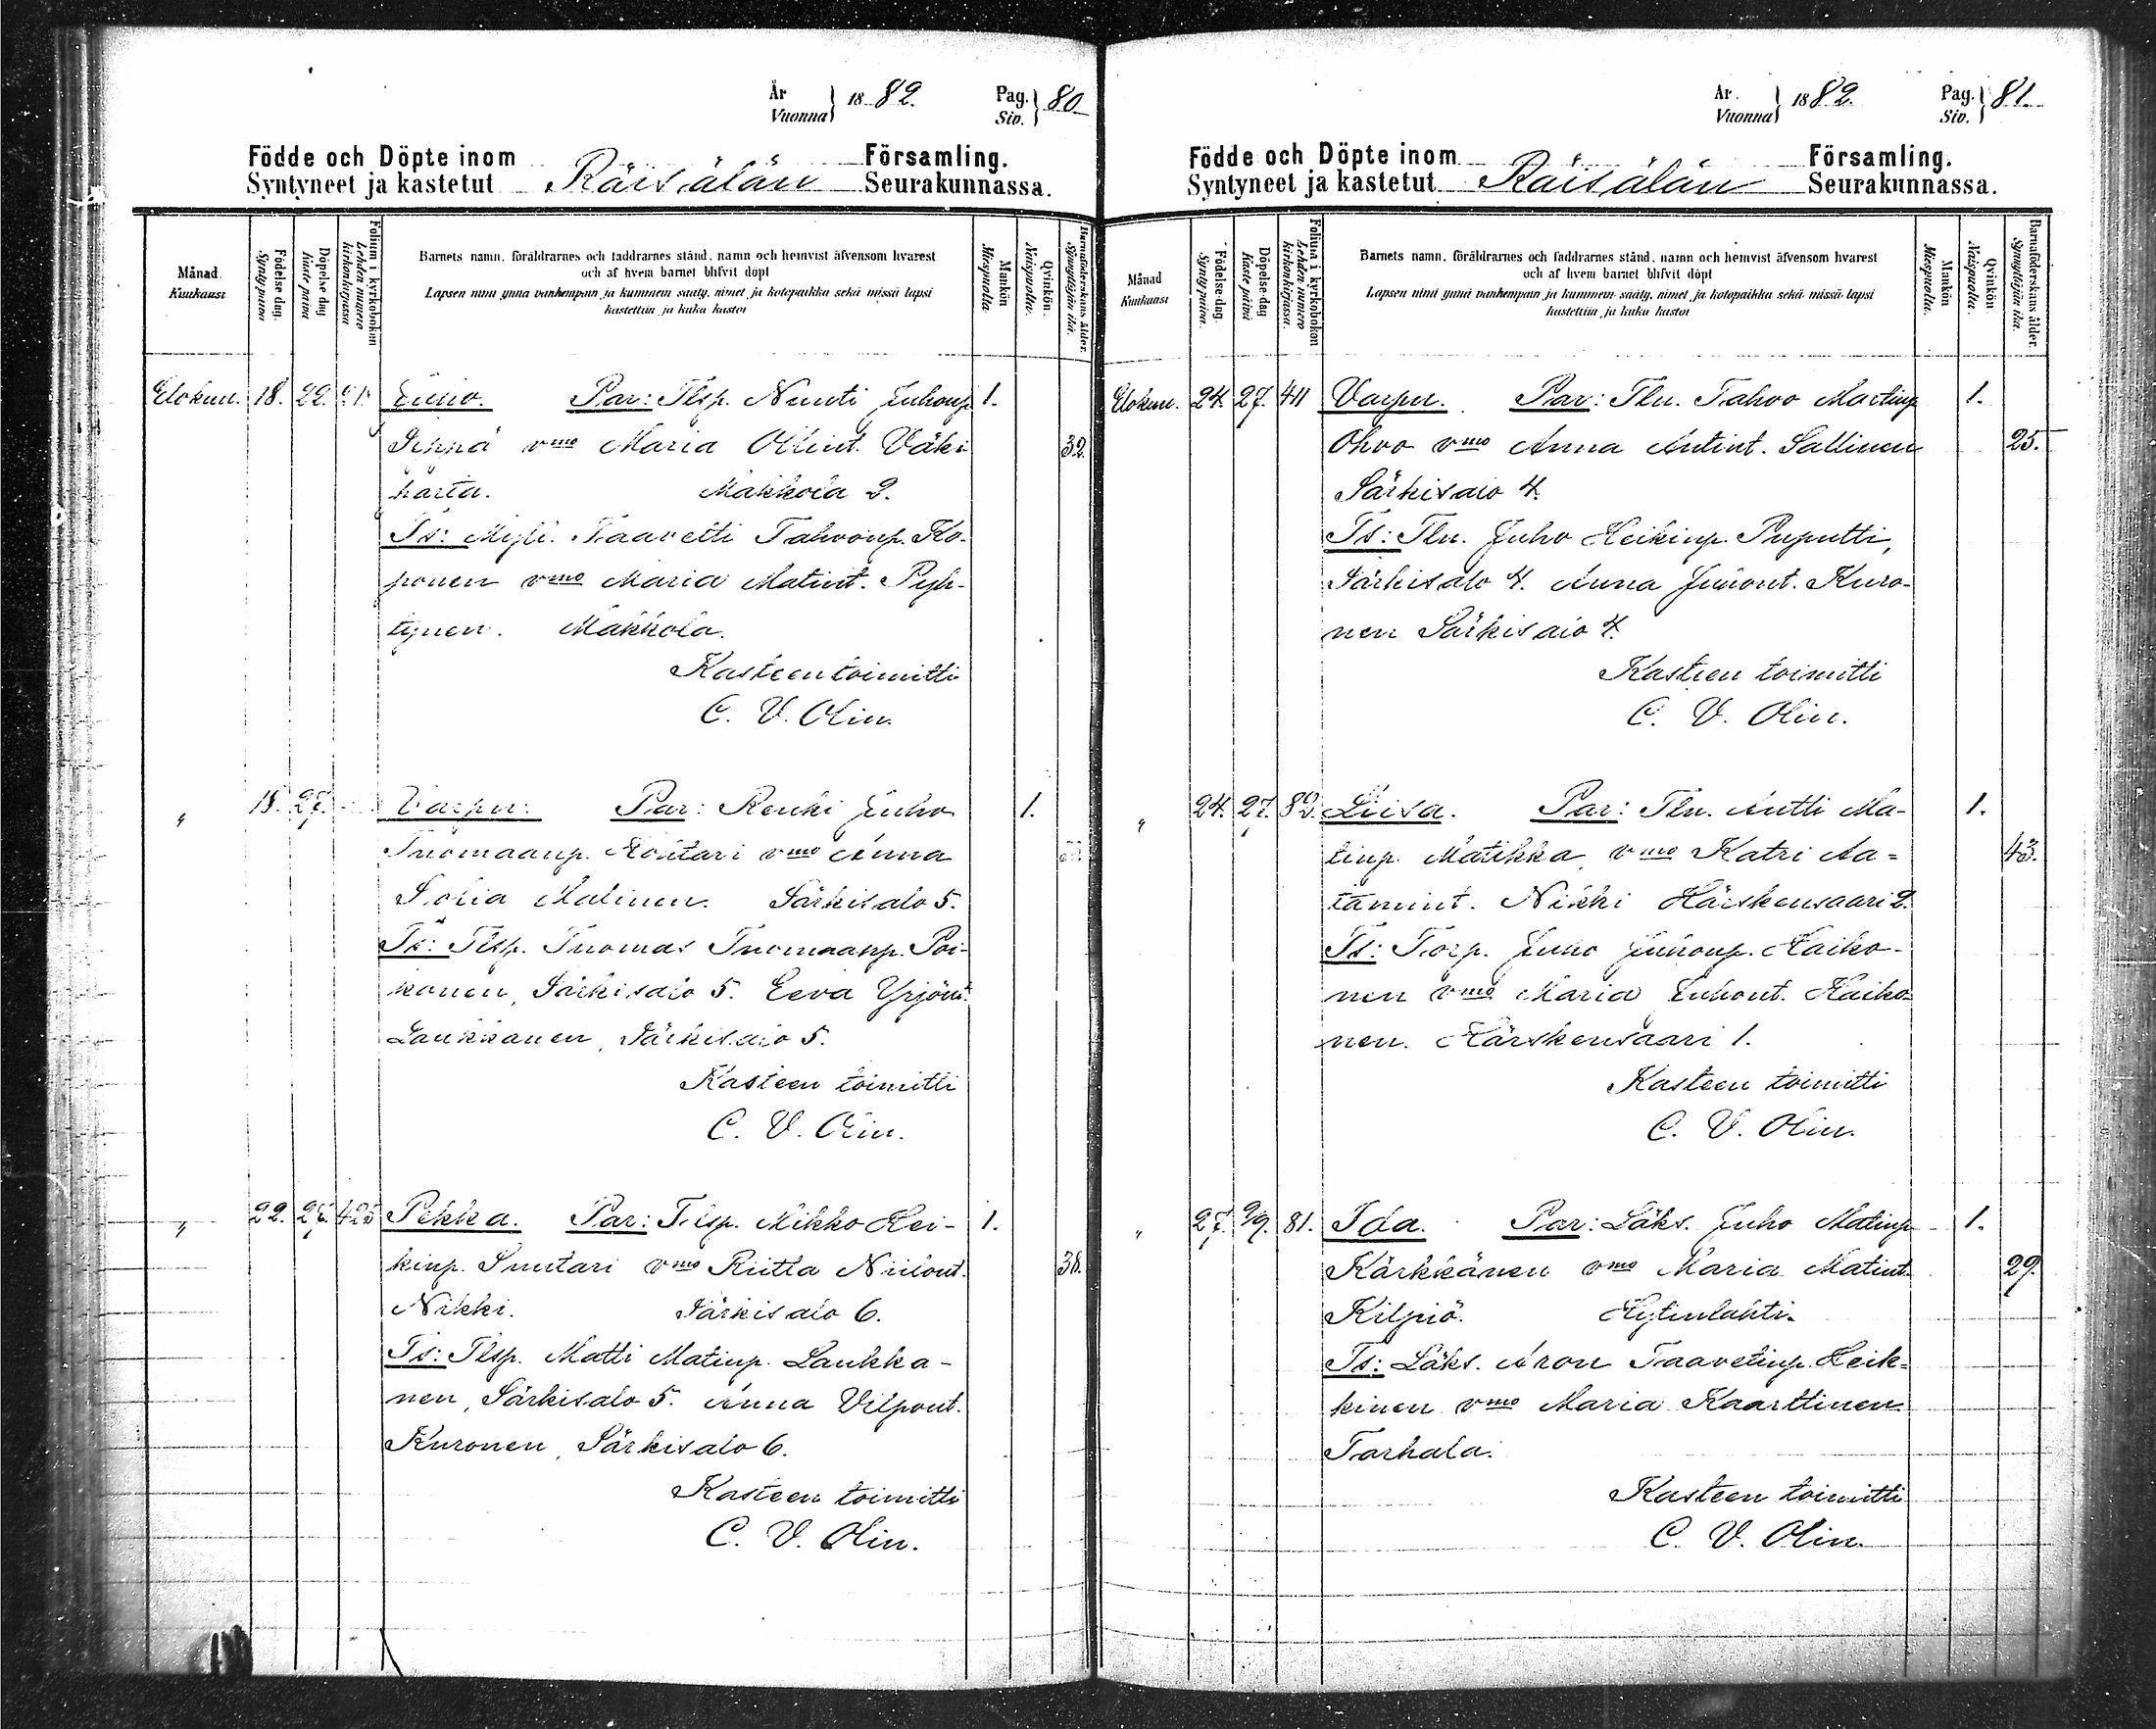 År
Vuonna } 1882.
Pag.
Siv. } 80
Födde och Döpte inom Räisälän Församling.
Syntyneet ja kastetut Seurakunnassa.
Månad.
Kuukausi
Födelse dag.
Synty päivä
Döpelse dag
Kaste päivä
Folium i kyrkoboken
Lehden numero kirkonkirjassa
Barnets namn, föräldrarnes och faddrarnes stånd, namn och hemvist äfvensom hvarest
och af hvem barnet blifvit döpt
Lapsen nimi ynnä vanhempain ja kummein sääty, nimet ja kotopaikka sekä missä lapsi
kastettiin ja kuka kastoi
Mankön
Miespuolia.
Qvinkön.
Naispuolia.
Barnaföderskans ålder.
Synnyttäjän ikä.
Elokuu. 18. 22. Juho. Par: Tlsp. Nuuti Juhonp. 1.
Sippa vmo Maria Ollint. Väki- 32.
parta. Makkola 2.
Ts: Myll. Taavetti Tahvonp. Ko-
ponen vmo Maria Matint. Pyh-
tynen. Makkola.
Kasteen toimitti
C. V. Olin.
" 18. 27. Varpu. Par: Renki Juho 1.
Tuomaanp. Kontari vmo Anna
Sohia Malinen. Särkisalo 5.
Ts: Tlsp. Tuomas Tuomaanp. Poi-
konen, Särkisalo 5. Eeva Yrjönt.
Laukkanen, Särkisalo 5.
Kasteen toimitti
C. V. Olin.
" 22. 27. 425 Pekka. Par: Tlsp. Mikko Hei- 1.
kinp. Suutari vmo Riitta Niilont. 38.
Nikki. Särkisalo 6.
Ts: Tlsp. Matti Matinp. Laukka-
nen, Särkisalo 5. Anna Vilpont.
Kuronen, Särkisalo 6.
Kasteen toimitti
C. V. Olin.
År
Vuonna } 1882.
Pag.
Siv. } 81.
Födde och Döpte inom Räisälän Församling.
Syntyneet ja kastetut Seurakunnassa.
Månad
Kuukausi
Födelse-dag.
Synty päivä.
Döpelse-dag
Kaste päivä
Folium i kyrkoboken
Lehden numero kirkonkirjassa.
Barnets namn, föräldrarnes och faddrarnes stånd, namn och hemvist äfvensom hvarest
och af hvem barnet blifvit döpt
Lapsen nimi ynnä vanhempain ja kummein sääty, nimet ja kotopaikka sekä missä lapsi
kastettiin ja kuka kastoi
Mankön
Miespuolia.
Qvinkön
Naispuolia.
Barnaföderskans ålder.
Synnyttäjän ikä.
Elokuu. 24. 27. 411 Varpu. Par: Tln. Tahvo Martinp. 1.
Ohvo vmo Anna Antint. Sallinen 25.
Särkisalo 4.
Ts: Tln. Juho Heikinp. Puputti,
Särkisalo 4. Anna Juhont. Kuro-
nen Särkisalo 4.
Kasteen toimitti
C. V. Olin.
" 24. 27. 82. Liisa. Par: Tln. Antti Ma- 1.
tinp. Matikka, vmo Katri Aa- 43.
tamint. Nikki Härskensaari 2.
Ts: Torp. Juho Juhonp. Kaiko-
nen vmo Maria Juhont. Kaiko-
nen. Härskensaari 1.
Kasteen toimitti
C. V. Olin.
" 27. 29. 81. Ida. Par: Läks. Juho Matinp. 1.
Kärkkänen vmo Maria Matint. 29.
Kilpiö. Hytinlahti.
Ts: Läks. Aron Taavetinp. Heik-
kinen vmo Maria Kaarttinen
Tarhala.
Kasteen toimitti
C. V. Olin.